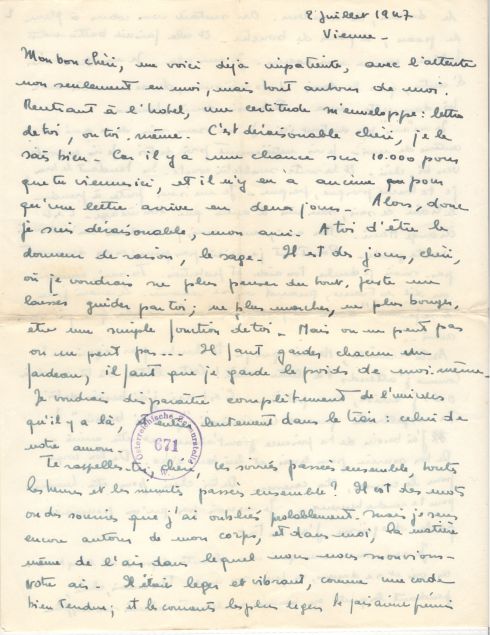 2 Juillet 1947
Vienne -
Mon bon chéri, me voici déjà impatiente, avec l'attente
non seulement en moi, mais tout autour de moi.
Rentrant à l'hotel, une certitude m'enveloppe : lettre
de toi, ou toi-même. C'est déraisonable chéri, je le
sais bien - Car il y a une chance sur 10.000 pour
que tu viennes ici, et il n'y en a aucune pour
qu'une lettre arrive en deux jours - Alors, donc
je suis déraisonable, mon ami - A toi d'être le
donneur de raison, le sage - Il est des jours, chéri,
où je voudrais ne plus penser du tout, juste me
laisser guider par toi ; ne plus marcher, ne plus bouger,
être une simple fonction de toi - Mais on ne peut pas
on ne peut pas... Il faut garder chacun son
fardeau, il faut que je garde le poids de moi-même -
Je voudrais disparaître complètement de l'univers
qu'il y a là, entrer lentement dans le tien : celui de
notre amour -
Te rappelles-tu, chéri, les soirées passées ensemble, toutes
les heures et les minutes passées ensemble ? Il est des mots
ou des sourires que j'ai oubliés probablement - mais je sens
encore autour de mon corps, et dans moi, la matière
même de l'air dans lequel nous nous mouvions -
Notre air - Il était léger et vibrant, comme une corde
bien tendue ; et les courants les plus légers le faisaient frémir
Österreichische Zensurstelle
671